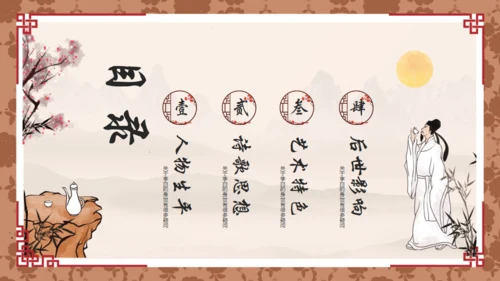 目录
壹
人物生平
贰
诗歌思想
叁
艺术特色
肆
后世影响